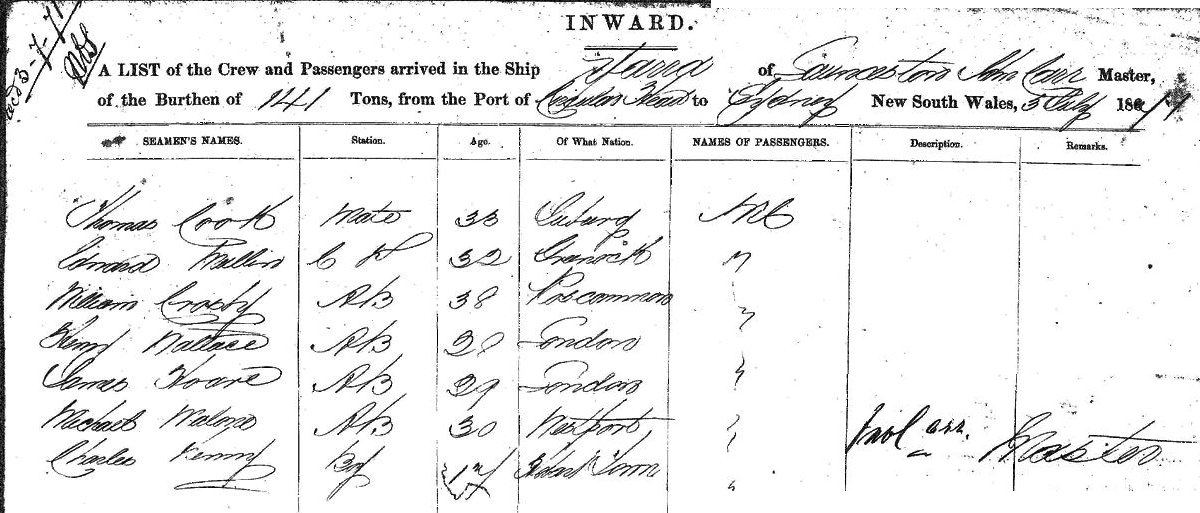 3-7-71
INWARD.
A LIST of the Crew and Passengers arrived in the Ship of Launceston Jno Carr Master,
of the Burthen of 141 Tons, from the Port of Circular Head to Sydney New South Wales, 3 July 1871
SEAMEN'S NAMES. Station. Age. Of What Nation. NAMES OF PASSENGERS. Description. Remarks.
Thomas Cook Mate 33
Edward Mallin 32 Granock
William Crosby AB 38 Roscommon "
Henry Wallace AB London "
James Hoare AB 29 London "
Michael Malone AB 30 Westport " Jno Carr. Master
Charles Kenny Boy 17 Hobart Town "